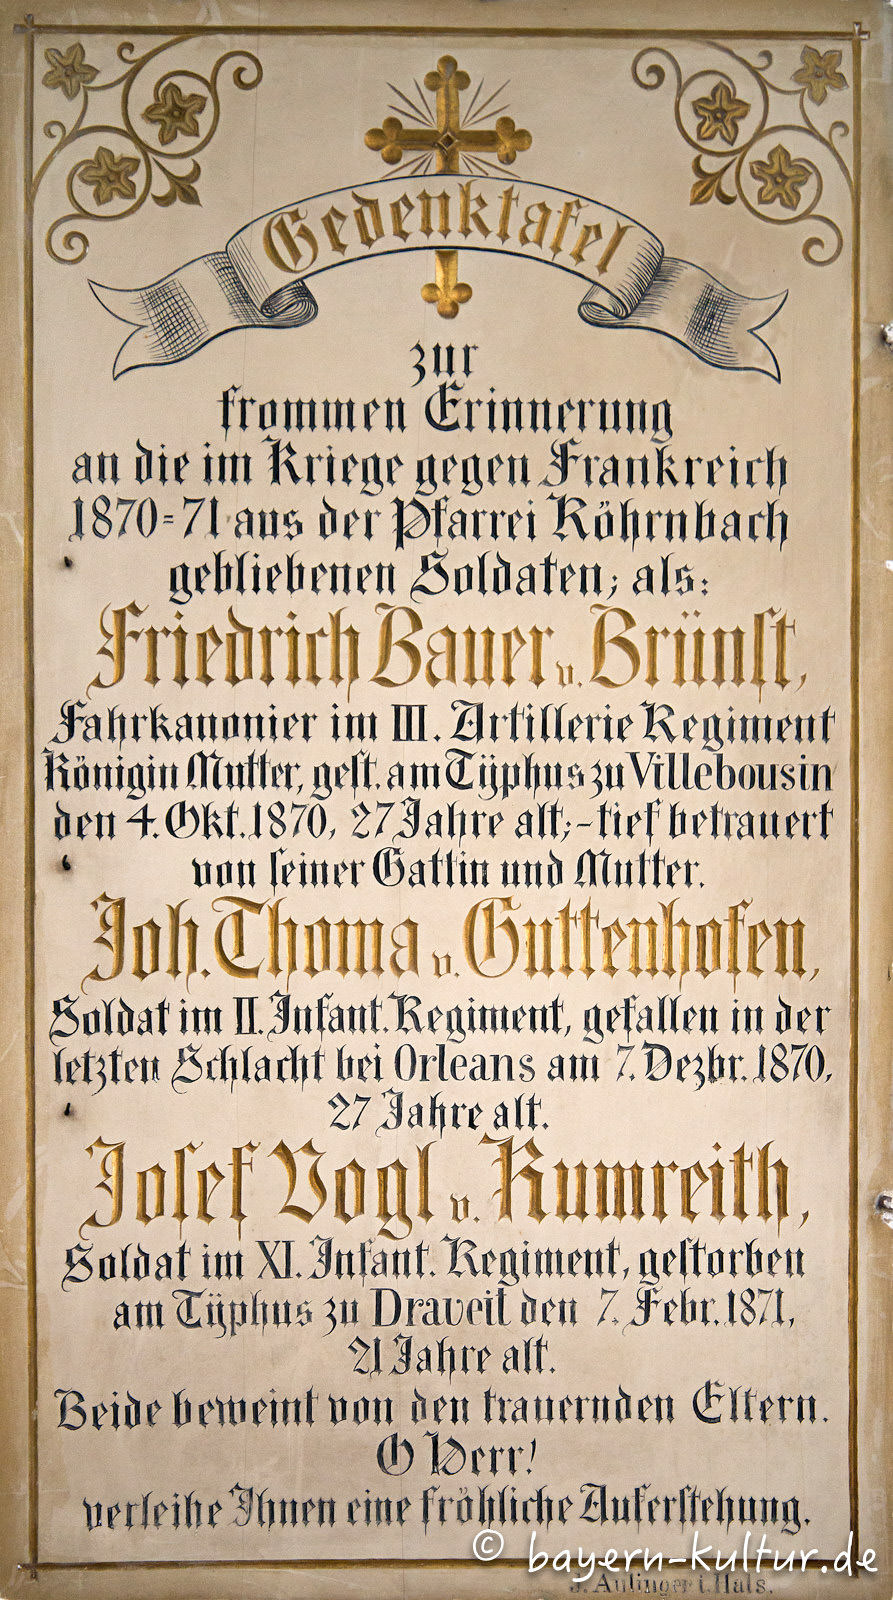 Gedenktafel
zur
frommen Erinnerung
an die im Kriege gegen Frankreich
1870=71 aus der Pfarrei Röhrnbach
gebliebenen Soldaten; als:
Friedrich Bauer v. Brünst,
Fahrkanonier im III. Artillerie Regiment
Königin Mutter, gest. am Tÿphus zu Villebousin
den 4. Okt. 1870, 27 Jahre alt;-tief betrauert
von seiner Gattin und Mutter.
Joh. Thoma v. Guttenhofen,
Soldat im II. Infant. Regiment, gefallen in der
letzten Schlacht bei Orleans am 7. Dezbr. 1870,
27 Jahre alt.
Josef Vogl v. Rumreith,
Soldat im XI. Infant. Regiment, gestorben
am Tÿphus zu Draveil den 7. Febr. 1871,
21 Jahre alt.
Beide beweint von den trauernden Eltern.
O Herr!
verleihe Ihnen eine fröhliche Auferstehung.
© bayern-kultur.de
J. Aulinger i. Hals.